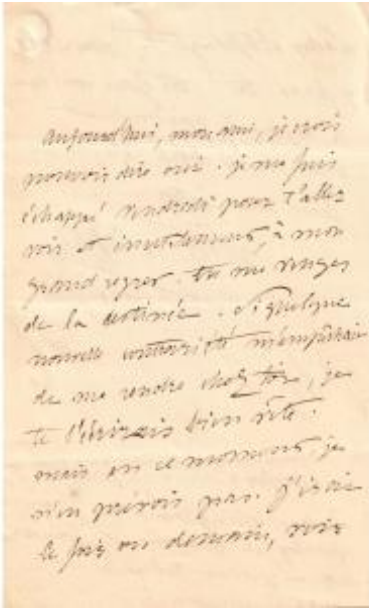 Aujourd'hui, mon ami, je crois
pouvoir dire oui. je me suis
échappé vendredi pour t'aller
voir et inutilement, à mon
grand regret. tu me venges
de la destinée. Si quelque
nouvelle contrariété m'empêchait
de me rendre chez toi, je
te l'écrirais bien vite.
mais en ce moment, je
n'en prévois pas. j'irai
ce soir, ou demain, voir